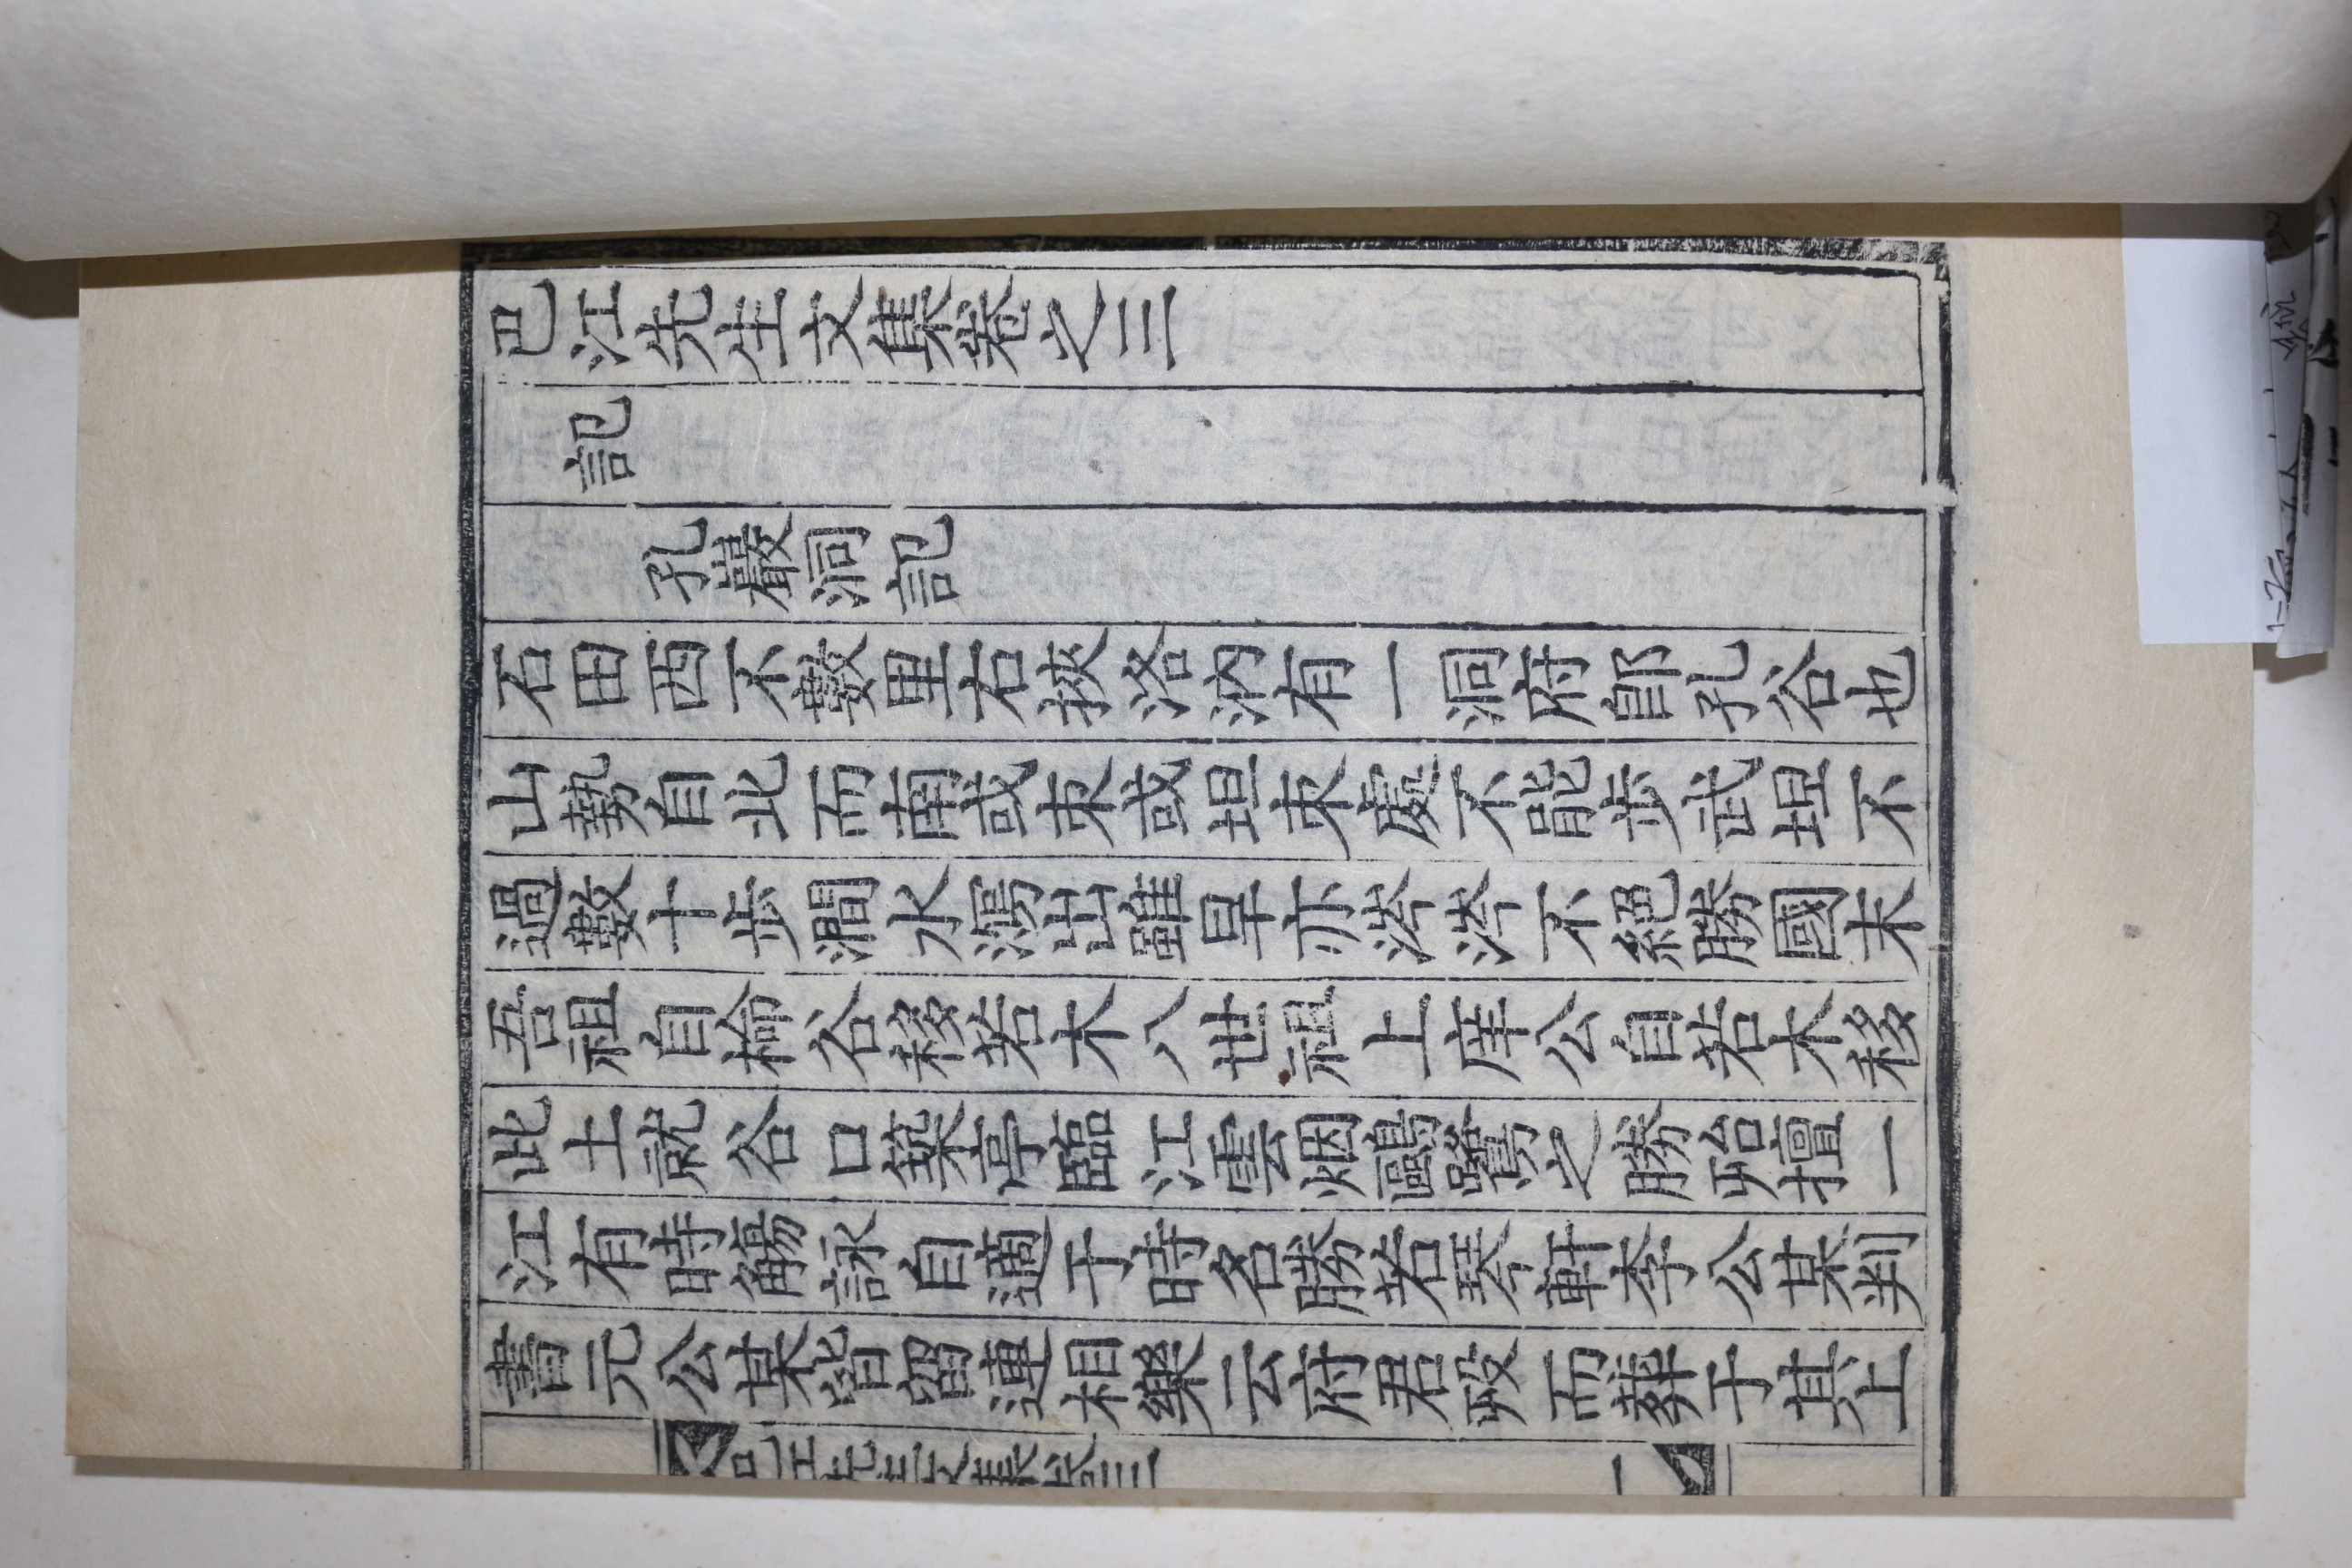 巴江先生文集卷之三
記
孔巖洞記
石田西不數里右挾洛汭有一洞府郎孔谷也
山勢自北而南或束或坦束處不能步武坦不
過數十步澗水瀉出雖旱亦涔涔不絕勝國末
吾祖自棆谷移若木八世祖上庠公自若木移
此土就谷口築亭臨江雲烟鷗鷺之勝殆擅一
江有時觴詠自適于時名勝若琴軒李公某判
書元公某皆留連相樂云府君歿而葬于其上
巴江先生文集卷三
一